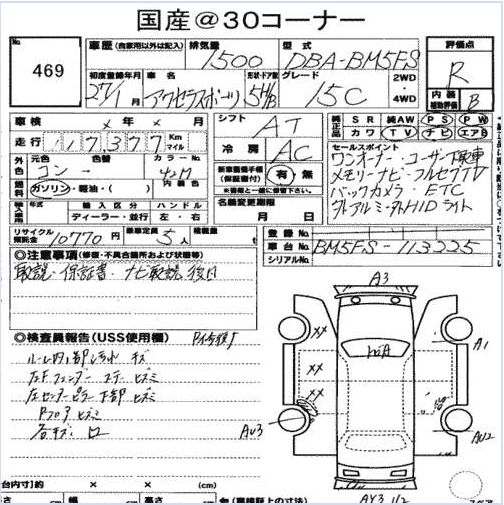 国産@30コーナー
No.
469
車歴(自家用以外は記入)
排気量 1500
型式 DBA-BM5FS
評価点
R
初度登録年月 27/1月
車名 アクセラスポーツ
形状・ドア数 5H/B
グレード 15C
2WD
・4WD
内装
補助評価 B
車検 × 年 × 月
シフト AT
純正品 SR 純AW PS PW
カワ TV ナビ エアB
走行 17377 Km マイル
冷房 AC
セールスポイント
ワンオーナー・ユーザー下取車
メモリーナビ・フルセグTV
バックカメラ・ETC
外アルミ・外HIDライト
外色 元色 コン 色替 カラーNo. 42M
燃料 ガソリン・軽油・( ) 内装色
新車整備手帳
(保証書付) 有・無
輸入車 年式 輸入区分 ハンドル
ディーラー・並行 左・右
名義変更期限
月 日
リサイクル預託金 10770円
乗車定員 5人
積載量
登録No.
車台No. BM5FS-113225
シリアルNo.
◎注意事項(修復・不具合箇所および状態等)
取説・保証書・ナビ取説後日
◎検査員報告(USS使用欄)
ルーム内 キズ
左Fフェンダーステーヒズミ
左センターピラー下部ヒズミ
Bフロアヒズミ
各キズ
A3
A1
AU3
AU2
AY3
1/2
台内寸約) × × (cm)
幅 高さ